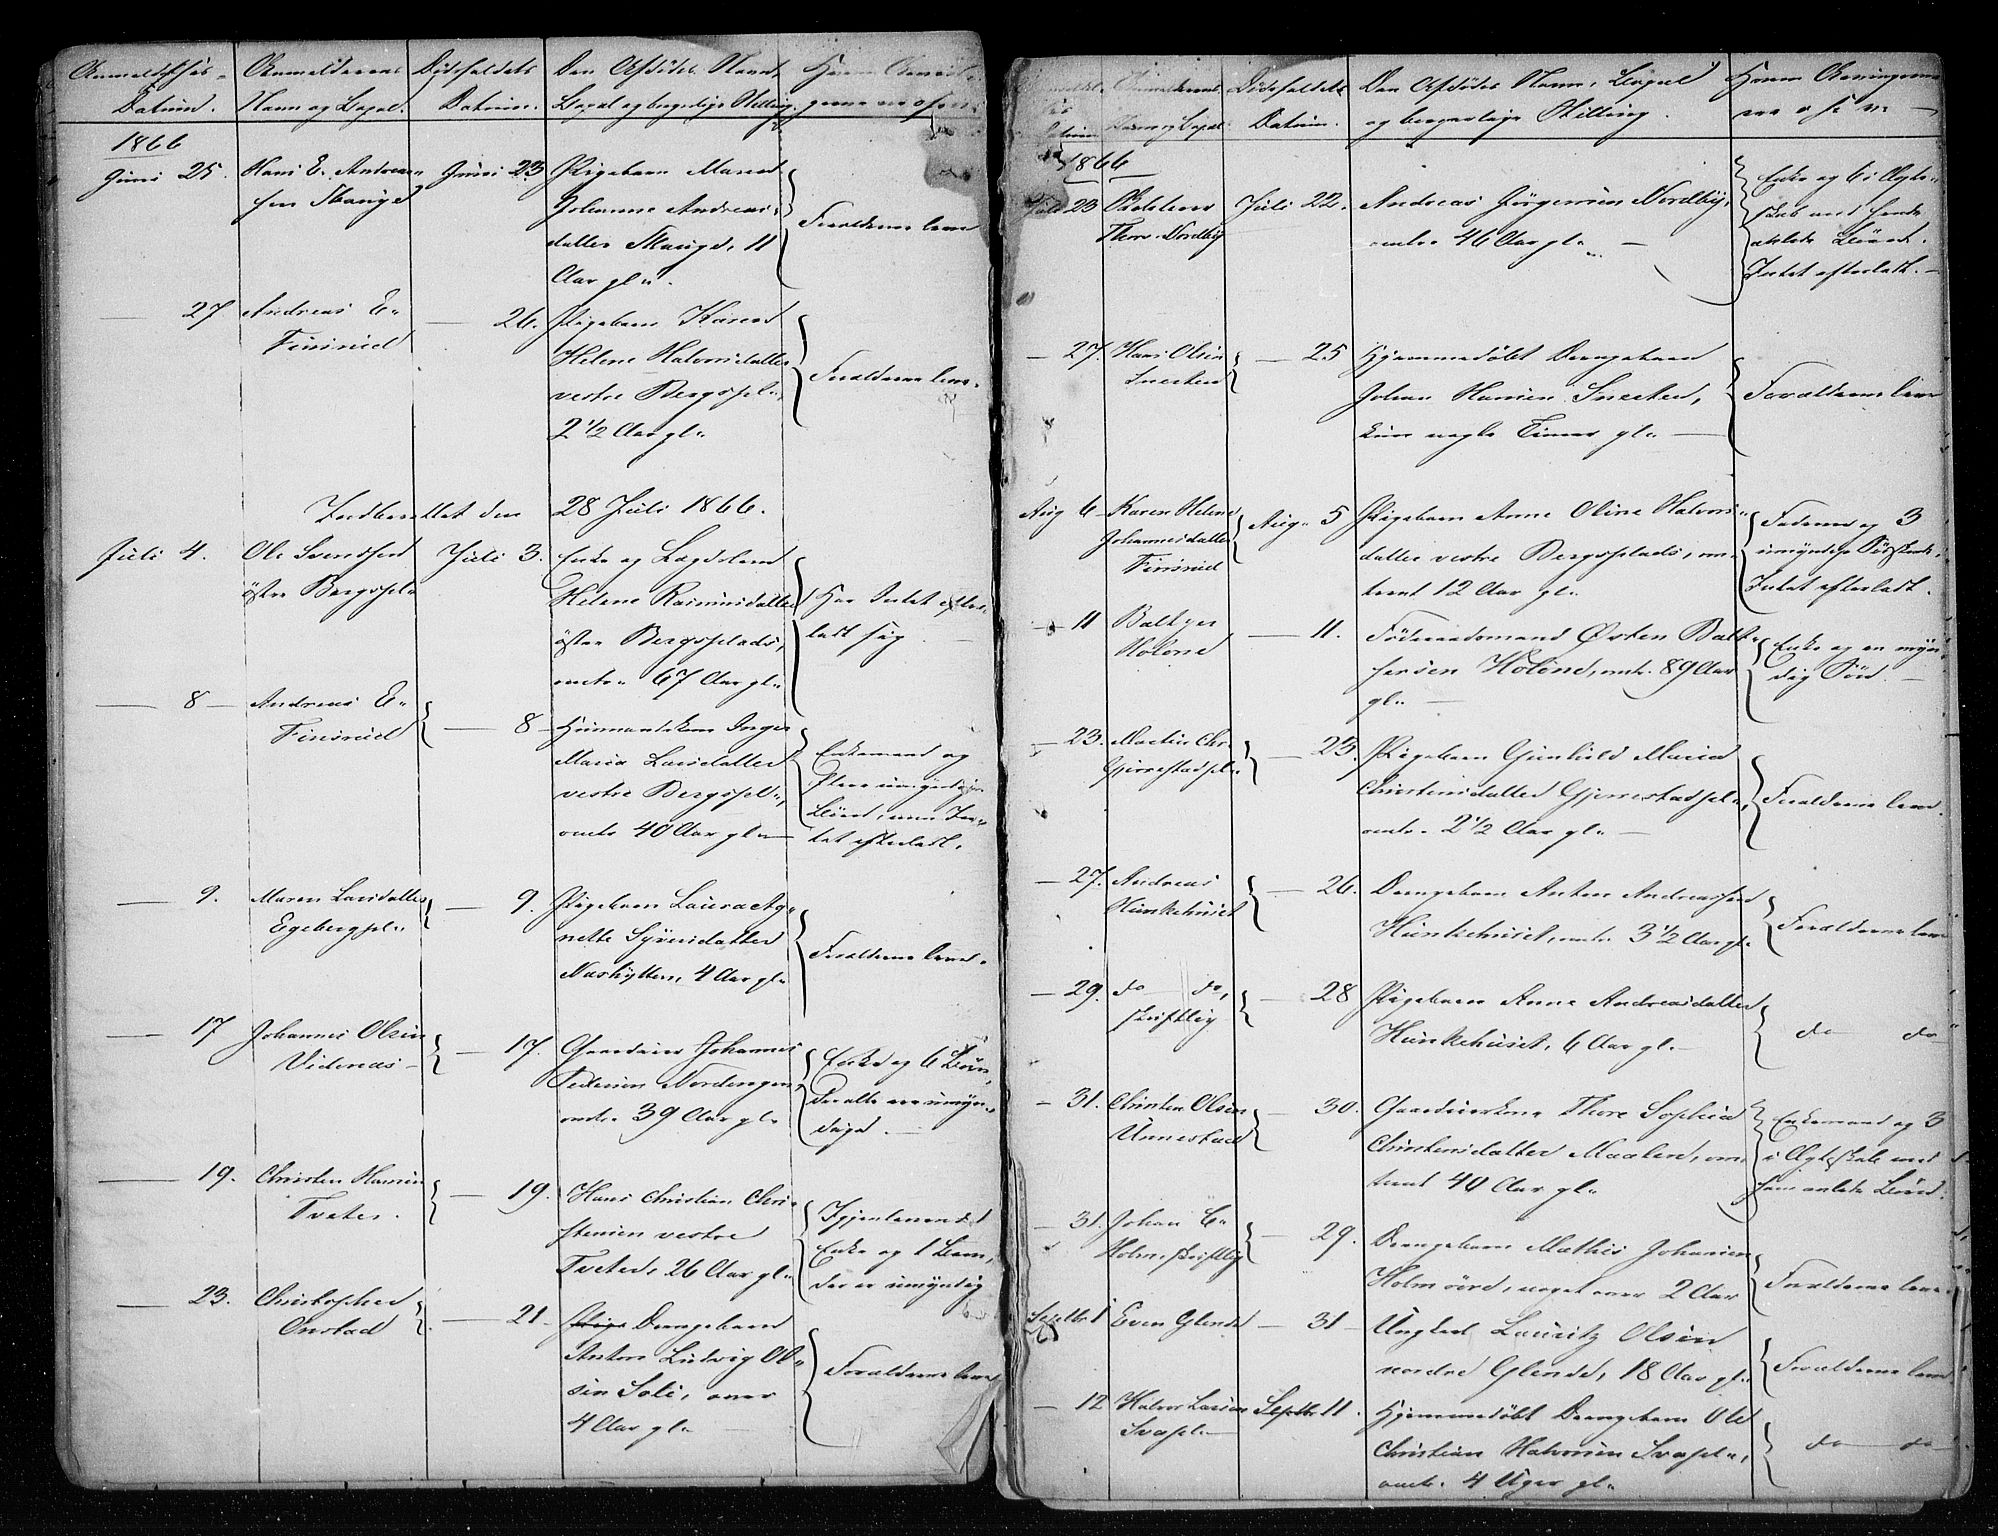 Anmeldelses-
Datum.
Anmelderens
Navn og Bopæl.
Dødsfaldets
Datum.
Den Afdødes Navn,
Bopæl og borgerlige Stilling.
1866
Juni 25.
Hans E. Andreas-
sen Stange
Juni 23
Pigebarn Maren
Johanne Andreas-
datter Stange, 11
Aar gl.
Forældrene leve
— 27
Andreas E.
Finsrud
— 26.
Pigebarn Karen
Helene Halvorsdatter
vestre Bergspl.,
2 1/2 Aar gl.
Forældrene leve.
Indberettet den 28 Juli 1866.
Juli 4.
Ole Svendsen
östre Bergspl.
Juli 3.
Enke og Lægdslem
Helene Rasmusdatter
östre Bergsplads,
omtr. 67 Aar gl.
Har Intet efter-
ladt sig.
— 8 —
Andreas E.
Finsrud
— 8 —
Huusmandskone Inger
Maria Larsdatter
vestre Bergspl.,
omtr. 40 Aar gl. —
Enkemand og
flere umyndige
Börn, men In-
tet efterladt.
— 9.
Maren Larsdatter
Egebergpl.
— 9.
Pigebarn Laura Ag-
nette Syversdatter
Nashytten, 4 Aar gl.
Forældrene leve.
— 17
Johannes Olsen
Videnæs —
— 17.
Gaardbruger Johannes
Pedersen Nordengen,
omtr. 39 Aar gl.
Enke og 6 Börn,
der alle ere umyn-
dige. —
— 19.
Christen Hansen
Tveter.
— 19.
Hans Christian Chri-
stensen vestre
Tveter, 26 Aar gl.
Enke og 1 Barn,
der er umyndig
— 23.
Christopher
Onstad
— 21 —
Drengebarn
Anton Ludvig Ol-
sen Soli, over
4 Aar gl. —
Forældrene leve
Dødsfaldets
Datum.
Den Afdødes Navn, Bopæl
og borgerlige Stilling.
1866
Juli 23
Thore Nordby
Juli 22.
Andreas Jörgensen Nordby,
omtr. 46 Aar gl. —
Enke og 6 i Ægte-
skab med hende
avlede Börn.
Intet efterladt. —
— 27.
Hans Olsen
Sneeker
— 25
Hjemmedöbt Drengebarn
Johan Hansen Sneeker,
kun nogle Timer gl. —
Forældrene leve
Aug 6 —
Karen Helene
Johannesdatter
Finsrud
Aug. 5
Pigebarn Anne Oline Halvors-
datter vestre Bergsplads, om-
trent 12 Aar gl.
Faderen og 3
umyndige Södskende.
Intet efterladt.
— 11
Baltzer
Holene
— 11.
Föderaadsmand Östen Balt-
sersen Holene, omtr. 89 Aar
gl. —
Enke og en myn-
dig Sön. —
— 23.
Martin Chr.
Gjerrestadpl.
— 23.
Pigebarn Gunhild Maria
Christensdatter Gjerrestadpl.,
omtr. 2 1/2 Aar gl. —
Forældrene leve.
— 27.
Andreas
Hunkehuset
— 26.
Drengebarn Anton Andreassen
Hunkehuset, omtr. 3 1/2 Aar gl.
Forældrene leve
— 29.
do do,
skriftlig
— 28
Pigebarn Anne Andreasdatter
Hunkehuset, 6 Aar gl. —
do do
— 31.
Christen Olsen
Unnestad
— 30.
Gaardbrukerkone Thore Sophia
Christensdatter Maalen, om-
trent 40 Aar gl.
Enkemand og 3
i Ægteskab med
ham avlede Börn.
— 31.
Johan C.
Holm, skriftlig
— 29.
Drengebarn Mathis Johansen
Holm, noget over 2 Aar
Forældrene leve.
Septbr 1
Even Glende
— 31 —
Ungkarl Lauritz Olsen
nordre Glende, 18 Aar gl.
Forældrene leve
— 12
Halvor Larsen
Svapl. —
Septbr. 11.
Hjemmedöbt Drengebarn Ole
Christian Halvorsen Svapl.,
omtr. 4 Uger gl.
do do